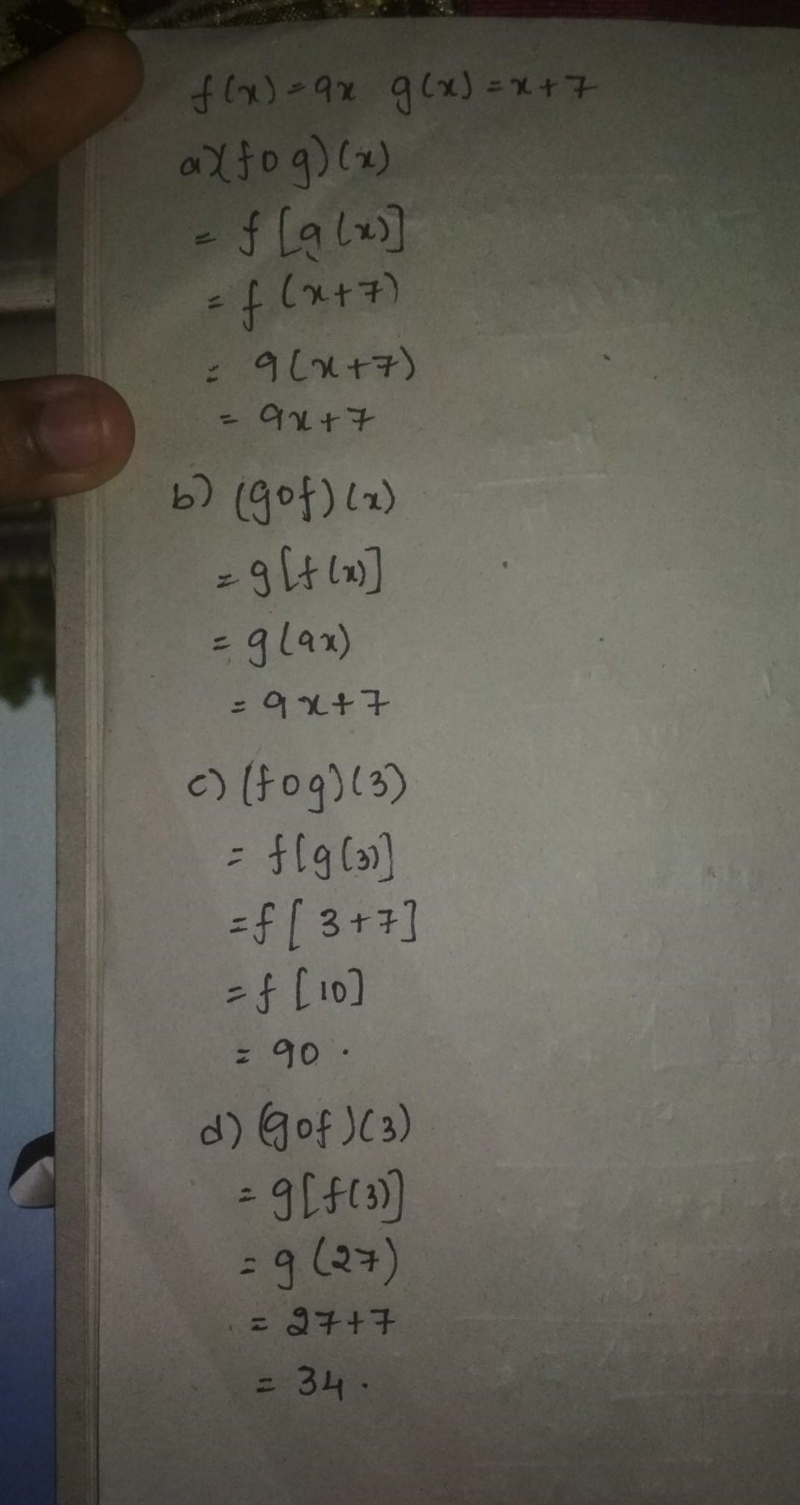 f(x) = 9x g(x) = x+7
a) (f o g) (x)
= f [g(x)]
= f (x+7)
= 9(x+7)
= 9x+7
b) (gof) (x)
= g[f(x)]
= g(9x)
= 9x+7
c) (fog)(3)
= f[g(3)]
= f[3+7]
= f[10]
= 90.
d) (gof)(3)
= g[f(3)]
= g(27)
= 27+7
= 34.